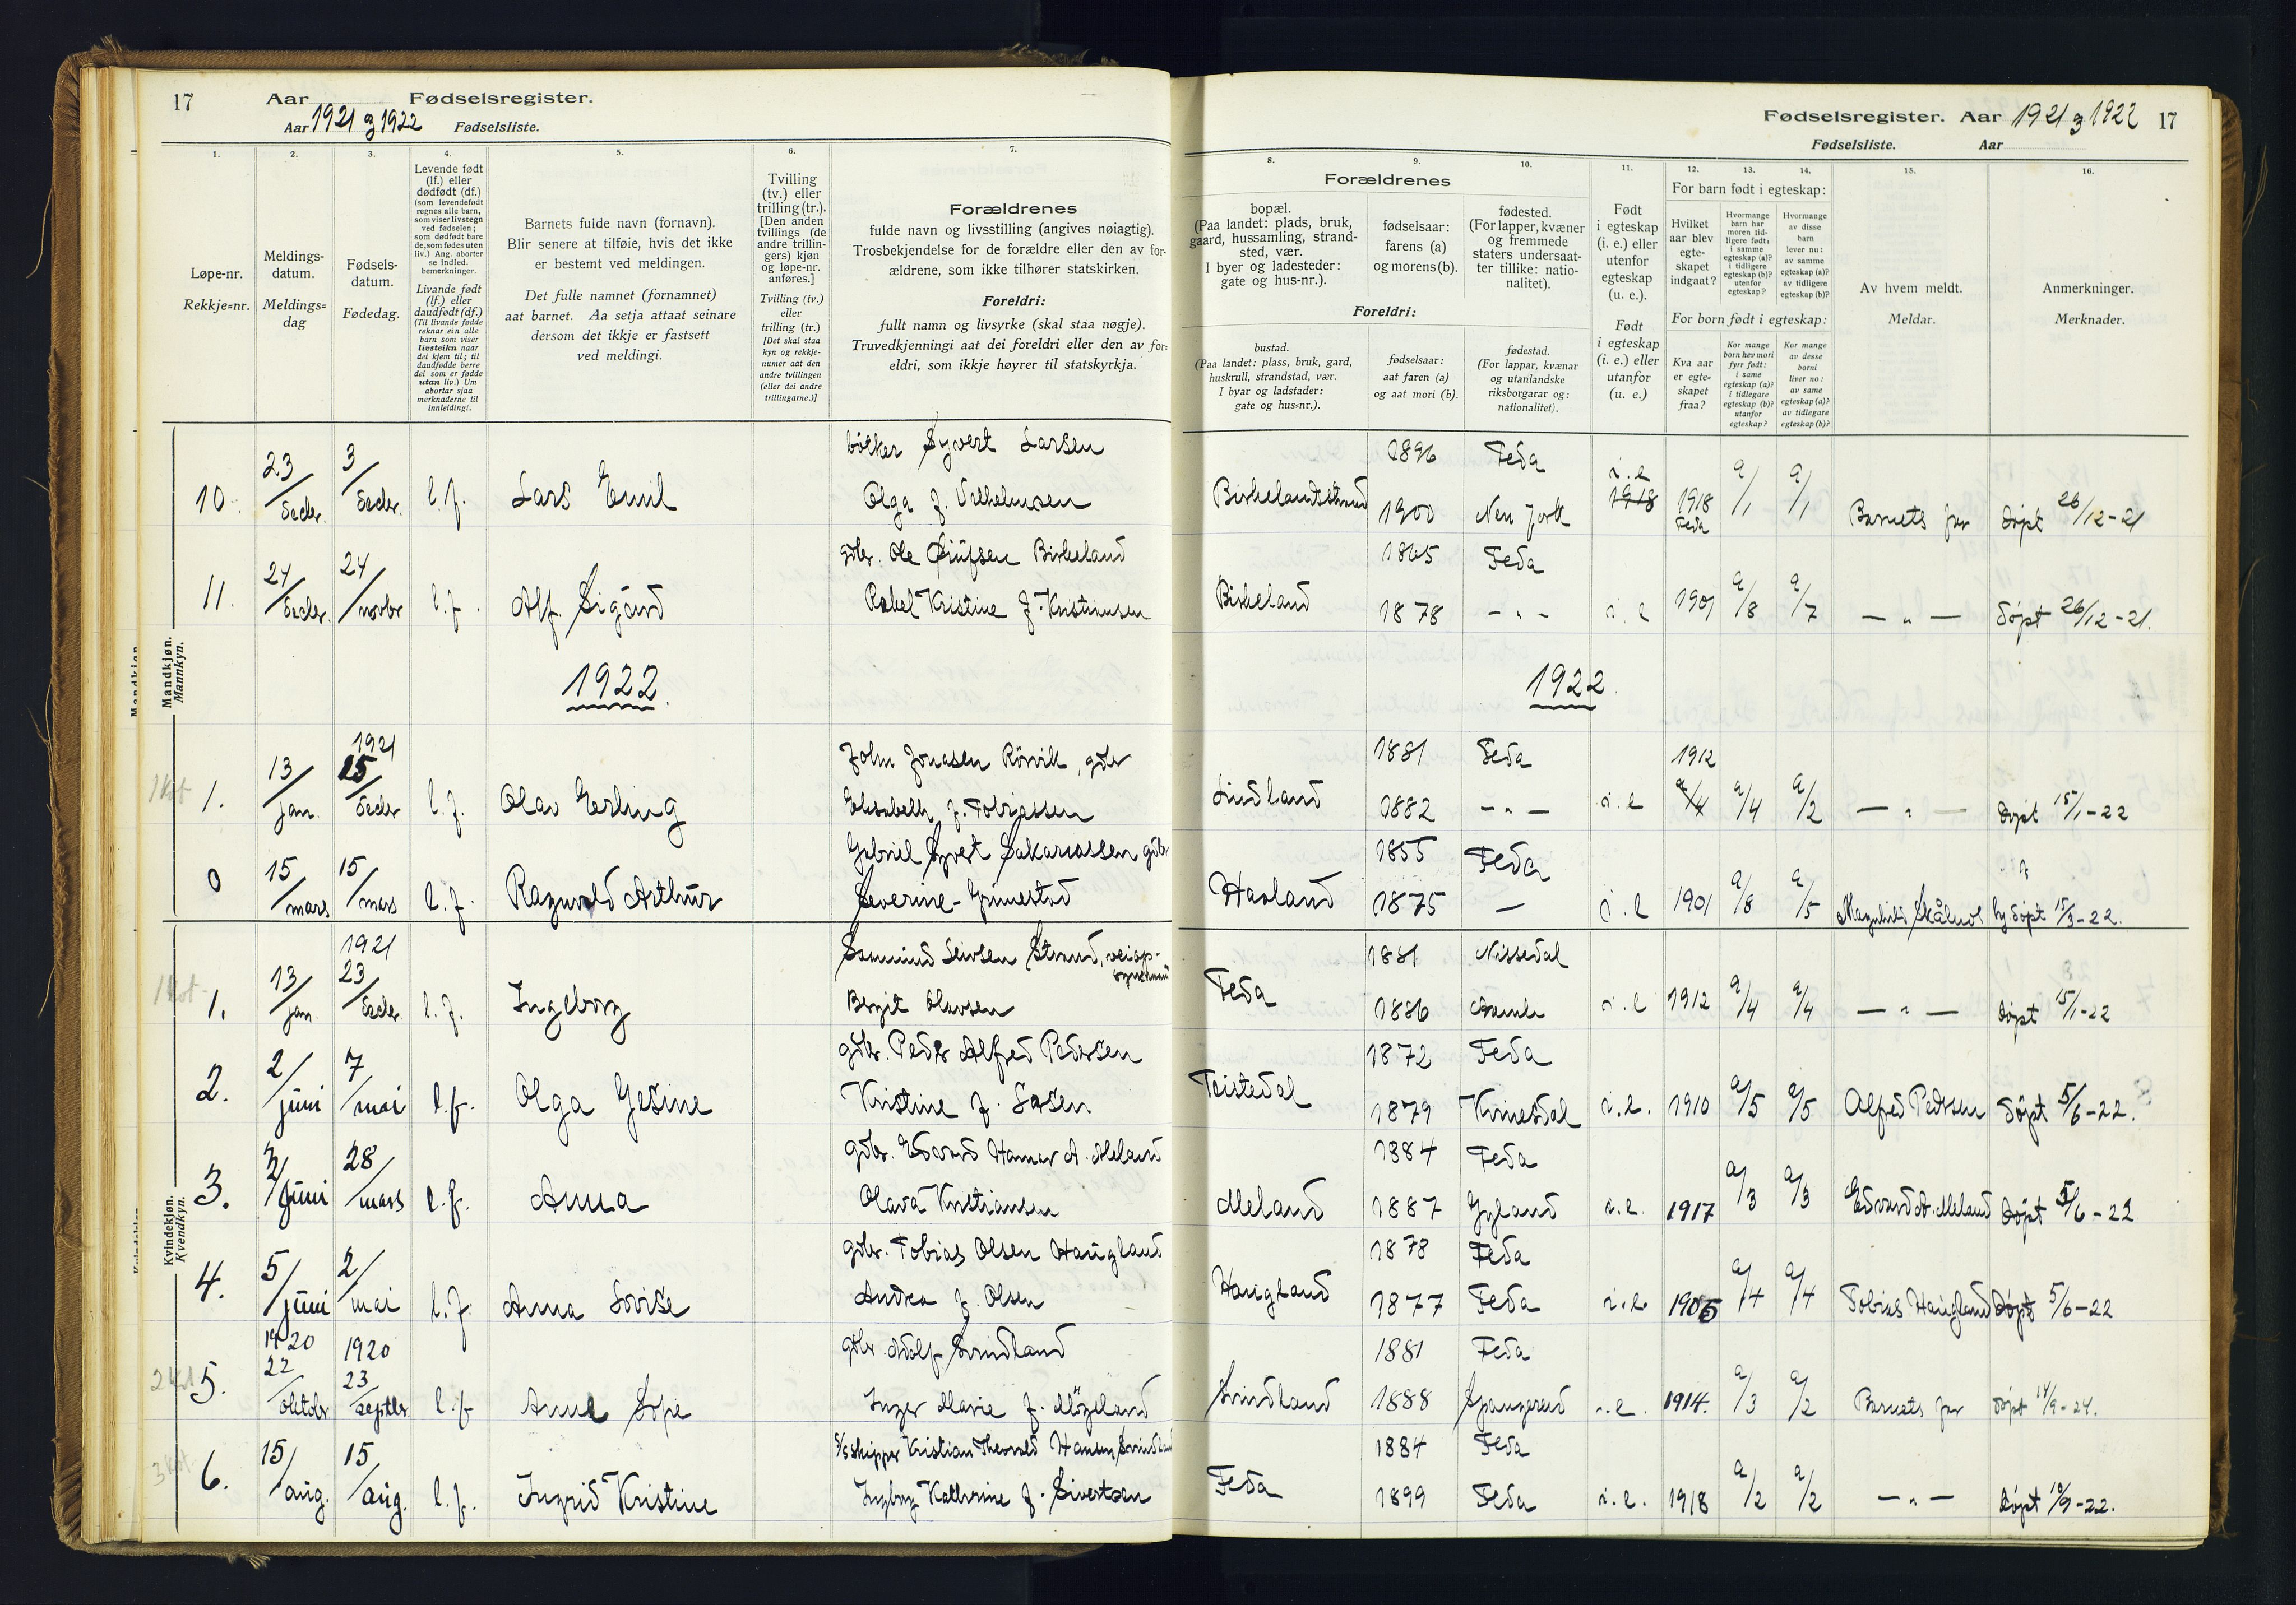 17 Aar Fødselsregister.
Aar 1921 og 1922 Fødselsliste.
1. 2. 3. 4. 5. 6. 7.
Løpe-nr.
Rekkje=nr.
Meldings-
datum.
Meldings=
dag
Fødsels-
datum.
Fødedag.
Levende født
(lf.) eller
dødfødt (df.)
(som levendefødt
regnes alle barn,
som viser livstegn
ved fødselen;
som dødfødt bare
de, som fødes uten
liv.) Ang. aborter
se indled.
bemerkninger.
Livande født
(lf.) eller
daudfødt (df.)
(Til livande fødde
reknar ein alle
barn som viser
livsteikn naar
dei kjem til; til
daudfødde berre
dei som er fødde
utan liv.) Um
abortar sjaa
merknaderne til
innleidingi.
Barnets fulde navn (fornavn).
Blir senere at tilføie, hvis det ikke
er bestemt ved meldingen.
Det fulle namnet (fornamnet)
aat barnet. Aa setja attaat seinare
dersom det ikkje er fastsett
ved meldingi.
Tvilling
(tv.) eller
trilling (tr.).
[Den anden
tvillings (de
andre trillin-
gers) kjøn
og løpe-nr.
anføres.]
Tvilling (tv.)
eller
trilling (tr.)
[Det skal staa
kyn og rekkje-
numer aat den
andre tvillingen
(eller dei andre
trillingarne.)]
Forældrenes
fulde navn og livsstilling (angives nøiagtig).
Trosbekjendelse for de forældre eller den av for-
ældrene, som ikke tilhører statskirken.
Foreldri:
fullt namn og livsyrke (skal staa nøgje).
Truvedkjenningi aat dei foreldri eller den av for=
eldri, som ikkje høyrer til statskyrkja.
Mandkjøn.
Mannkyn.
10. 23/decbr. 3/decbr. l.f. Lars Emil
bøtker Syvert Larsen
Olga f. Vilhelmsen
11. 24/decbr. 24/novbr l.f. Alf Sigurd
gdbr. Ole Birkeland
Rakel Kristine f. Kristiansen
1922.
1. 13/jan. 1921 15/decbr l.f. Olav Erling
John Jonasen Rørvik, gdbr
Elisabeth f. Tobiassen
0 15/mars 15/mars l.f. Ragnvald Arthur
Gabriel Syvert Sakariassen gdbr
Severine Grimestad
Kvindekjøn.
Kvendkyn.
1. 13/jan 1921 23/decbr l.f. Ingeborg
Sommund Sivrsen Strand,
Bergit Olavsen
2. 2/juni 7/mai l.f. Olga Gesine
gdbr. Peder Alfred Pedersen
Kristine f. Larsen
3. 2/juni 28/mars l.f. Anna
gdbr. Edvard Hamar A. Meland
Olava Kristiansen
4. 5/juni 2/mai l.f. Anna Lovise
gdbr. Tobias Olsen Haugland
Andrea f. Olsen
5. 1920 22/oktobr 1920 23/septbr l.f. Anne Sofie
gdbr. Adolf Svindland
Inger Marie f. Møgeland
6. 15/aug. 15/aug. l.f. Ingrid Kristine
S/s skipper Kristian Theovald Hansen Svindland
Ingborg Kathrine f. Sivertsen
Fødselsregister. Aar 1921 og 1922 17
Fødselsliste. Aar
8. 9. 10. 11. 12. 13. 14. 15. 16.
Forældrenes
bopæl.
(Paa landet: plads, bruk,
gaard, hussamling, strand-
sted, vær.
I byer og ladesteder:
gate og hus-nr.).
fødselsaar:
farens (a)
og morens (b).
fødested.
(For lapper, kvæner
og fremmede
staters undersaat-
ter tillike: natio-
nalitet).
Foreldri:
bustad.
(Paa landet: plass, bruk, gard,
huskrull, strandstad, vær.
I byar og ladstader:
gate og hus=nr.).
fødselsaar:
aat faren (a)
og aat mori (b).
fødestad.
(For lappar, kvænar
og utanlandske
riksborgarar og:
nationalitet).
Født
i egteskap
(i. e.) eller
utenfor
egteskap
(u. e.).
Født
i egteskap
(i. e.) eller
utanfor
egteskap
(u. e.)
For barn født i egteskap:
Hvilket
aar blev
egte-
skapet
indgaat?
Hvormange
barn har
moren tid-
ligere født:
i samme
egteskap (a)?
i tidligere
egteskap (b)?
utenfor
egteskap?
Hvormange
av disse
barn
lever nu:
av samme
egteskap (a)?
av tidligere
egteskap (b)?
For born født i egteskap:
Kva aar
er egte=
skapet
fraa?
Kor mange
born hev mori
fyrr født:
i same
egteskap (a)?
i tidlegare
egteskap (b)?
utanfor
egteskap?
Kor mange
av desse
borni
liver no:
av same
egteskap (a)?
av tidlegare
egteskap (b)?
Av hvem meldt.
Meldar.
Anmerkninger.
Merknader.
Birkelandsstrand 1896 Feda
1900 New York i.e 1918 1918 Feda a/1 a/1 Barnets far døpt 26/12-21
Birkeland 1865 Feda
1878 - " - i.e 1901 a/8 a/7 - " - døpt 26/12-21.
1922
Lindland 1881 Feda 1912
1882 - " - i.e a/4 a/4 a/2 - " - døpt 15/1-22
Havland 1855 Feda
1875 - i.e 1901 a/8 a/5 Magnhild hj.døpt 15/3-22.
Feda 1881 Nissedal
1886 i.e 1912 a/4 a/4 - " - døpt 15/1-22
Teistedal 1872 Feda
1879 Kvinesdal i.e. 1910 a/5 a/5 Alfred Pedersen døpt 5/6-22.
Meland 1884 Feda
1887 Gyland i.e. 1917 a/3 a/3 Edvard A. Meland døpt 5/6-22
Haugland 1878 Feda
1877 Feda i.e. 1905 a/4 a/4 Tobias Haugland døpt 5/6-22
Svindland 1881 Feda
1888 Spangereid i.e. 1914. a/3 a/2 Barnets far døpt 14/9-24.
Feda 1884 Feda
1899 Feda i.e. 1918 a/2 a/2 - " - døpt 10/9-22.